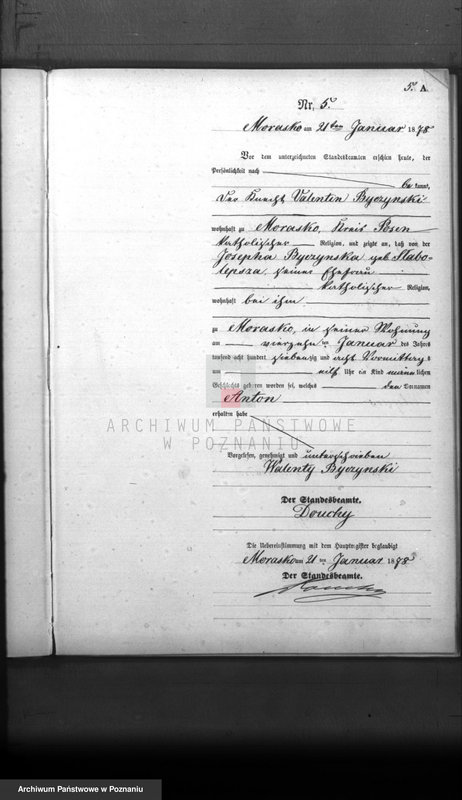 5. A.
Nr. 5.
Morasko am 21ten Januar 1878
Vor dem unterzeichneten Standesbeamten erschien heute, der
Persönlichkeit nach
be kannt,
Der Knecht Valentin Byczynski
wohnhaft zu Morasko, Kreis Posen
katholischer Religion, und zeigte an, daß von der
Josepha Byczynska geb. Slabo-
lepsza, seiner Ehefrau
katholischer Religion,
wohnhaft bei ihm
zu Morasko, in seiner Wohnung
am vierzehn ten Januar des Jahres
tausend acht hundert siebenzig und acht Vormittags
um elf Uhr ein Kind männlichen
Geschlechts geboren worden sei, welches den Vornamen
Anton
erhalten habe
ARCHIWUM PAŃSTWOWE
W POZNANIU
Vorgelesen, genehmigt und unterschrieben
Walenty Byczynski
Der Standesbeamte.
Douchy
Die Uebereinstimmung mit dem Hauptregister beglaubigt
Morasko am 21 ten Januar 1878
Der Standesbeamte.
Archiwum Państwowe w Poznaniu